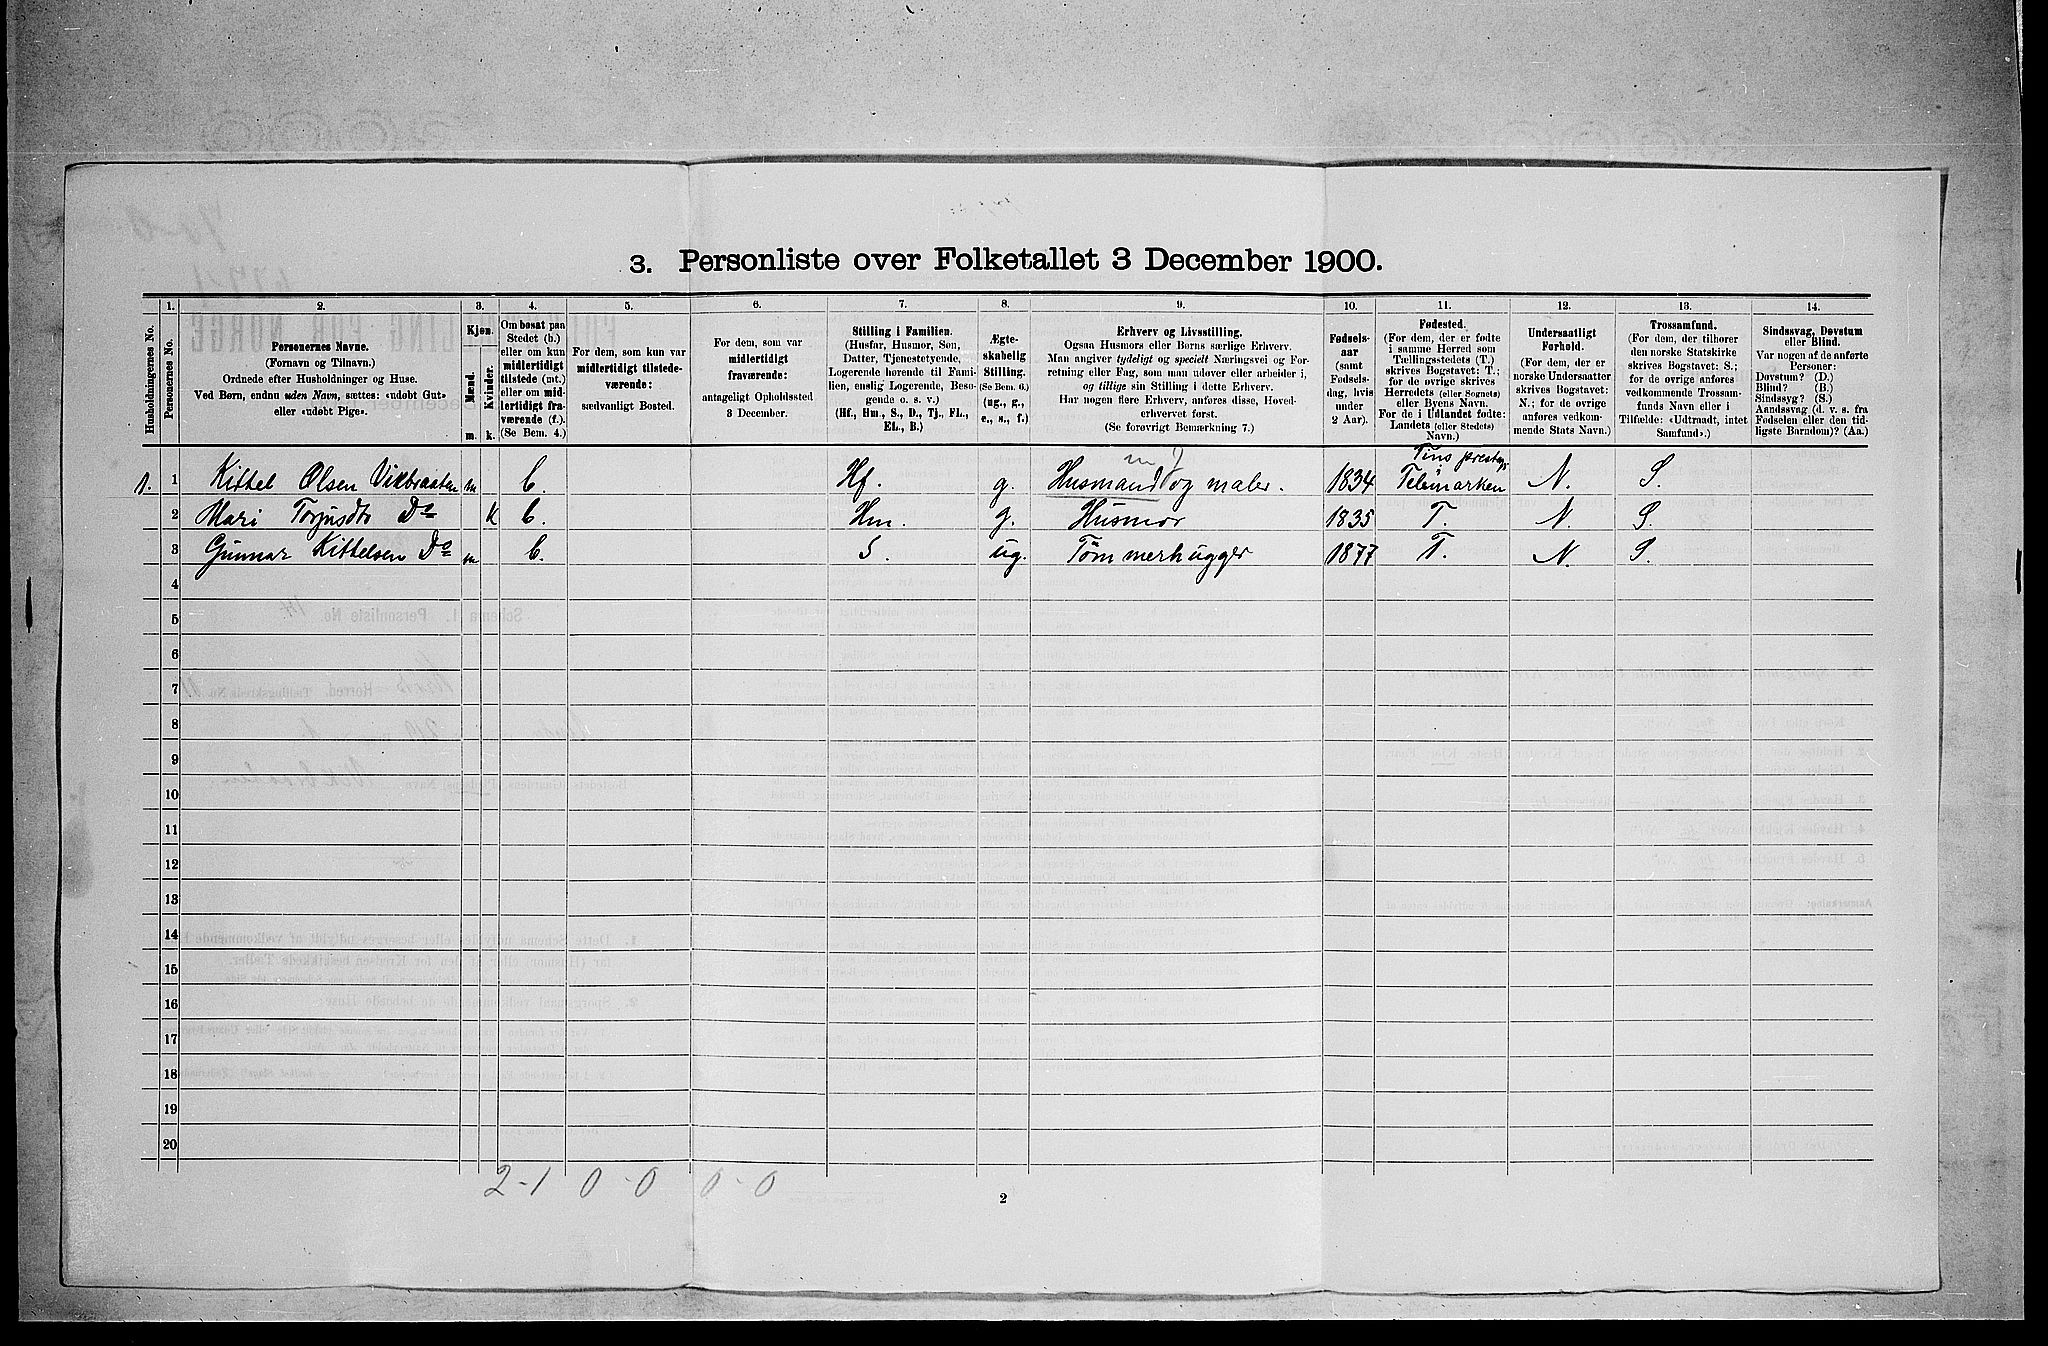 3. Personliste over Folketallet 3 December 1900.
1. 2. 3. 4. 5. 6. 7. 8. 9. 10. 11. 12. 13. 14.
Husholdningernes No.
Personernes No.
Personernes Navne.
(Fornavn og Tilnavn.)
Ordnede efter Husholdninger og Huse.
Ved Børn, endnu uden Navn, sættes: «udøbt Gut»
eller «udøbt Pige».
Kjøn.
Mænd.
Kvinder.
m. k.
Om bosat paa
Stedet (b.)
eller om kun
midlertidigt
tilstede (mt.)
eller om mid-
lertidigt fra-
værende (f.).
(Se Bem. 4.)
For dem, som kun var
midlertidigt tilstede-
værende:
sædvanligt Bosted.
For dem, som var
midlertidigt
fraværende:
antageligt Opholdssted
3 December.
Stilling i Familien.
(Husfar, Husmor, Søn,
Datter, Tjenestetyende,
Logerende hørende til Fami-
lien, enslig Logerende, Besø-
gende o. s. v.)
(Hf., Hm., S., D., Tj., FL.,
EL., B.)
Ægte-
skabelig
Stilling.
(Se Bem. 6.)
(ug., g.,
e., s., f.)
Erhverv og Livsstilling.
Ogsaa Husmors eller Børns særlige Erhverv.
Man angiver tydeligt og specielt Næringsvei og For-
retning eller Fag, som man udover eller arbeider i,
og tillige sin Stilling i dette Erhverv.
Har nogen flere Erhverv, anføres disse, Hoved-
erhvervet først.
(Se forøvrigt Bemærkning 7.)
Fødsels-
aar
(samt
Fødsels-
dag, hvis
under
2 Aar).
Fødested.
(For dem, der er fødte
i samme Herred som
Tællingsstedets (T.)
skrives Bogstavet: T.;
for de øvrige skrives
Herredets (eller Sognets)
eller Byens Navn.
For de i Udlandet fødte:
Landets (eller Stedets)
Navn.)
Undersaatligt
Forhold.
(For dem, der er
norske Undersaatter
skrives Bogstavet:
N.; for de øvrige
anføres vedkom-
mende Stats Navn.)
Trossamfund.
(For dem, der tilhører
den norske Statskirke
skrives Bogstavet: S.;
for de øvrige anføres
vedkommende Trossam-
funds Navn eller i
Tilfælde: «Udtraadt, intet
Samfund».)
Sindssvag, Døvstum
eller Blind.
Var nogen af de anførte
Personer:
Døvstum? (D.)
Blind? (B.)
Sindssyg? (S.)
Aandssvag (d. v. s. fra
Fødselen eller den tid-
ligste Barndom)? (Aa.)
1. 1 Kittel Olsen Vikbraaten m b. Hf. g. Husmand og maler. 1834 Tins prestegj. Telemarken N. S.
2 Mari Torjusdtr Do k b. Hm. g. Husmor 1835 T. N. S.
3 Gunnar Kittelsen Do m b. S. ug. Tømmerhugger 1877 T. N. S.
4
5
6
7
8
9
10
11
12
13
14
15
16
17
18
19
20
2-1 0-0 0-0
2